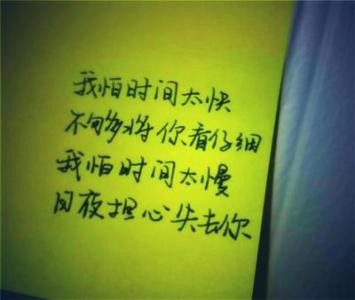 我怕时间太快
不够将你看仔细
我怕时间太慢
日夜担心失去你